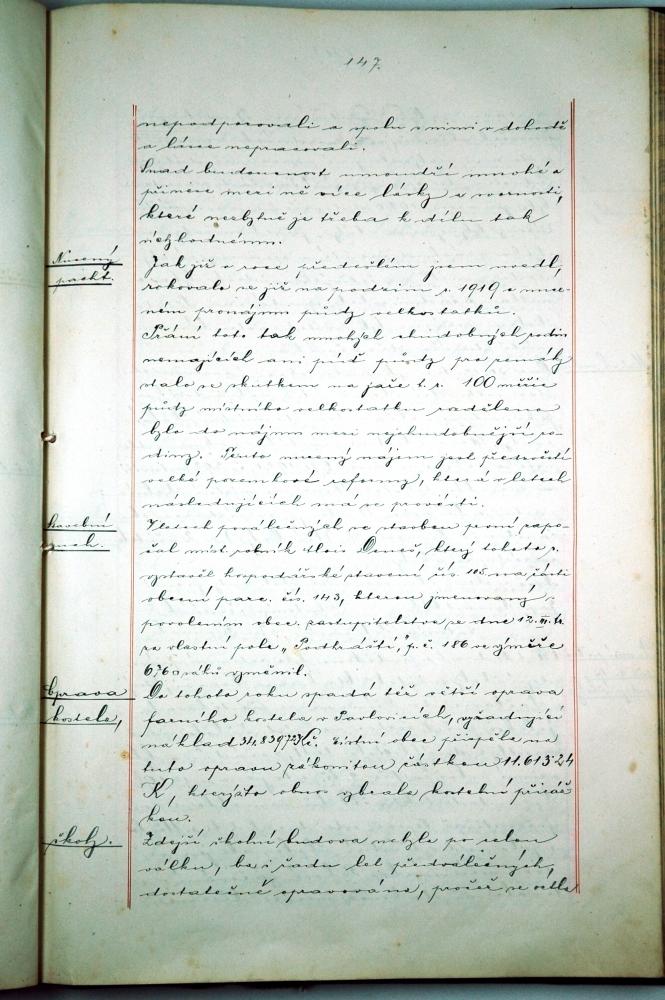 147.
nepodporovali a spolu s nimi v dohodě
a lásce nepracovali.
Snad budoucnost umoudří mnohé a
přinese mezi ně více lásky a svornosti,
které nezbytně je třeba k dílu tak
ušlechtilému.
Nucený
pacht.
Jak již v roce předešlém jsem uvedl,
rokovalo se již na podzim r. 1919 o nuce-
ném pronájmu půdy velkostatků.
Přání toto tak mnohých chudobných rodin
nemajících ani píď půdy pro zemáky
stalo se skutkem na jaře t. r. 100 měřic
půdy místního velkostatku rozděleno
bylo do nájmu mezi nejchudobnější ro-
diny. Tento nucený nájem jest předzvěstí
velké pozemkové reformy, která v letech
následujících má se provésti.
Stavební
ruch.
V letech poválečných se stavbou první zapo-
čal míst. rolník Alois Beneš, který tohoto r.
vystavěl hospodářské stavení čís. 105 na části
obecní parc. čís. 143, kterou jmenovaný s
povolením obec. zastupitelstva ze dne 12. III. t.r.
za vlastní pole „Podhráští", p. č. 186 ve výměře
676 □ sáhů vyměnil.
Oprava
kostela,
Do tohoto roku spadá též větší oprava
farního kostela v Pavlovicích, vyžadující
náklad 34.839·72 Kč. Místní obec přispěla na
tuto opravu zákonitou částkou 11.613·24
K, kterýžto obnos vybrala kostelní přiráž-
kou.
školy.
Zdejší školní budova nebyla po celou
válku, ba i řadu let předválečných,
dostatečně opravována, pročež se octla